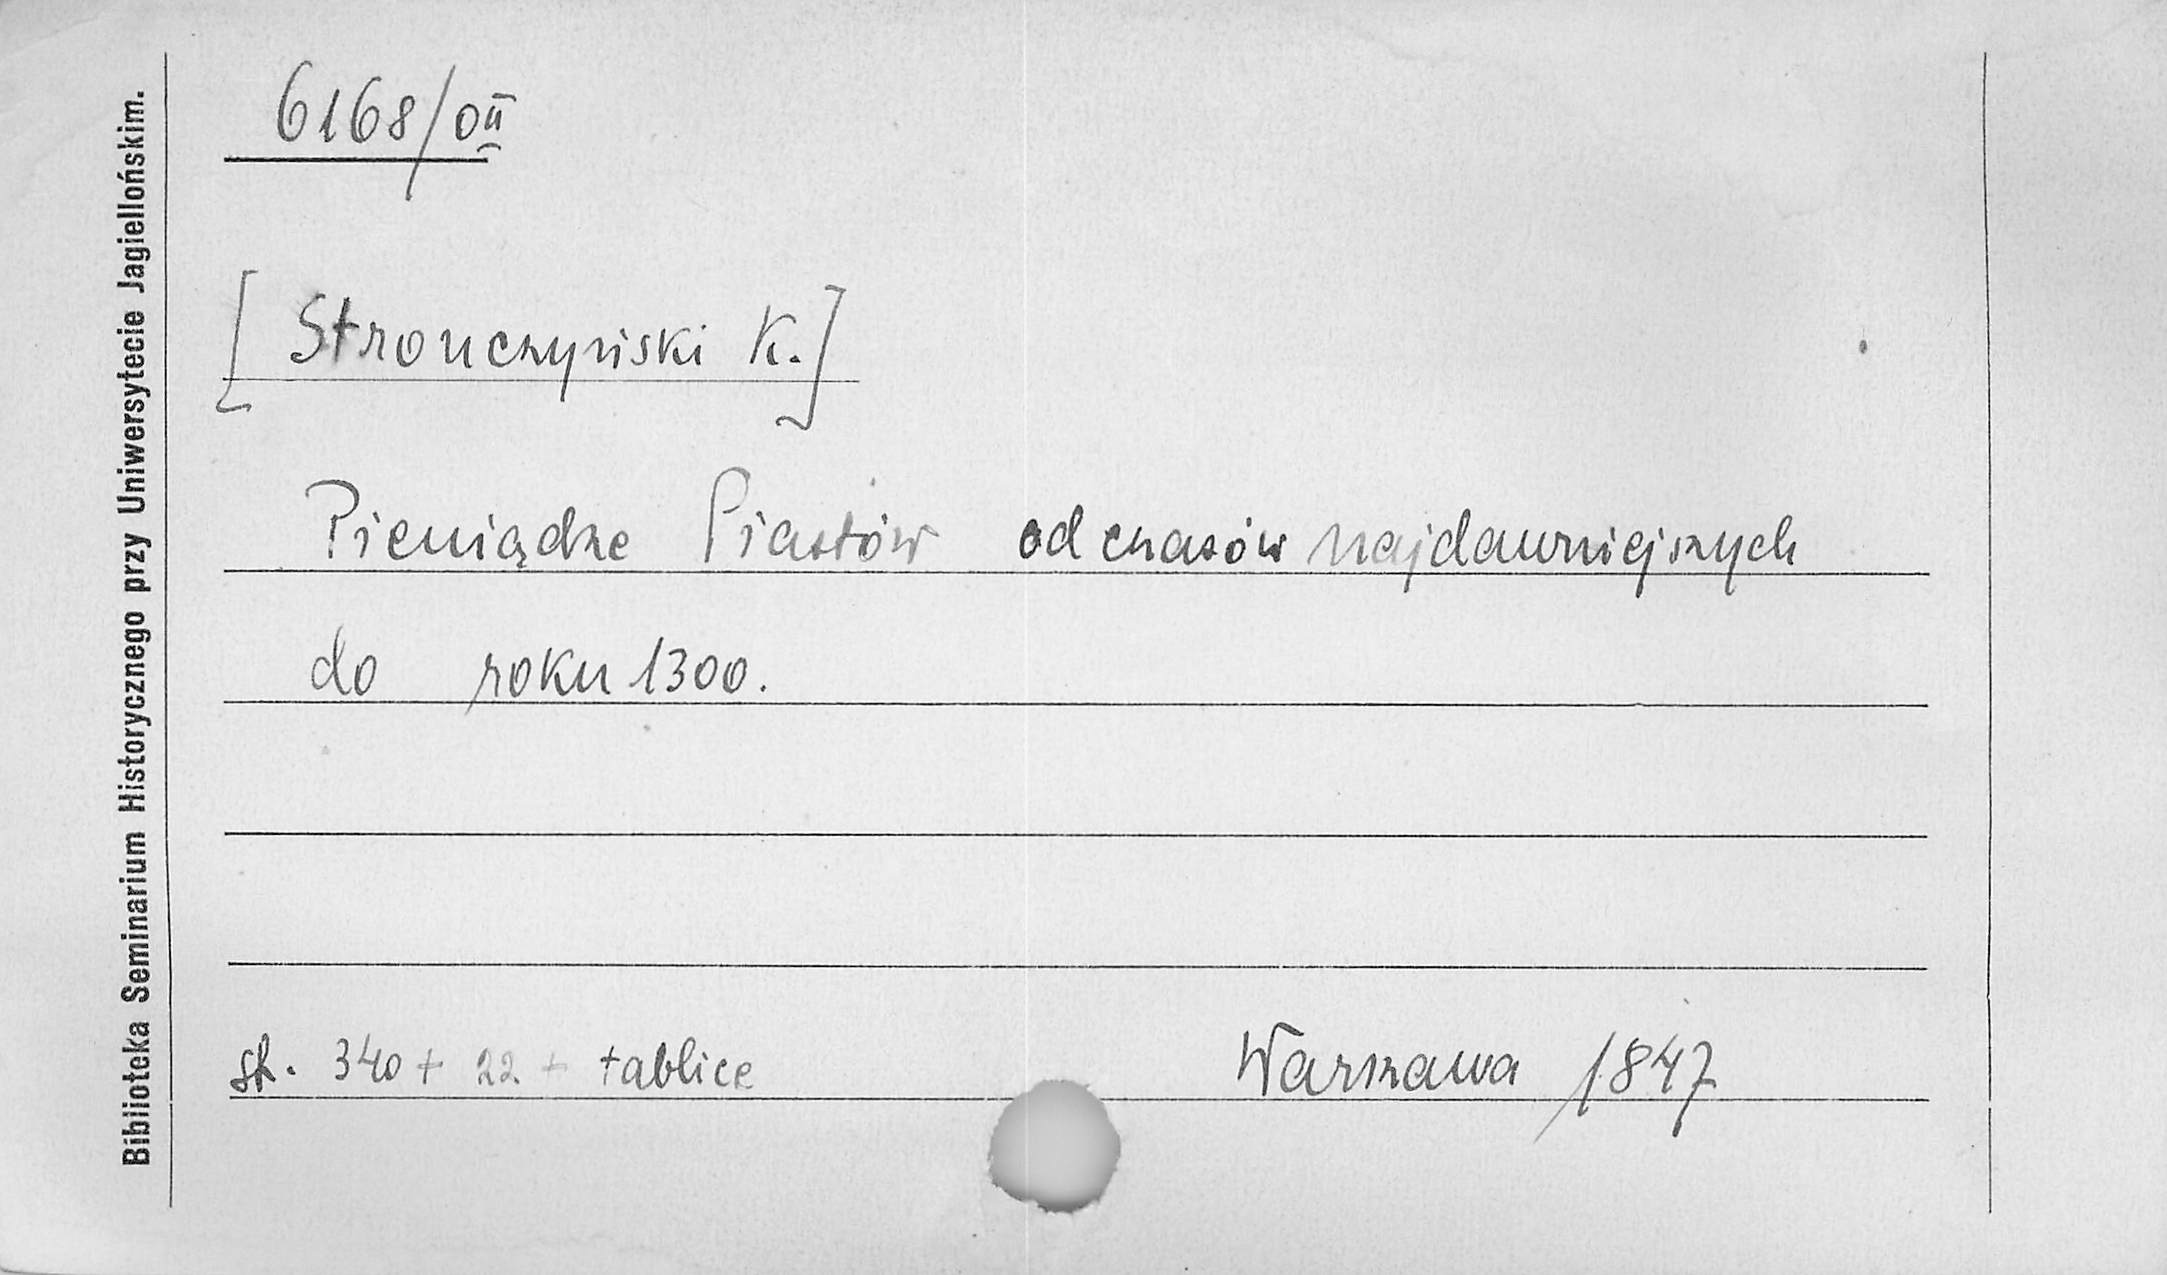 6168/0II
[Stronczyński K.]
Pieniądze Piastów od czasów najdawniejszych
do roku 1300.
str. 340 + 22 + tablice
Warszawa 1847
Biblioteka Seminarium Historycznego przy Uniwersytecie Jagiellońskim.